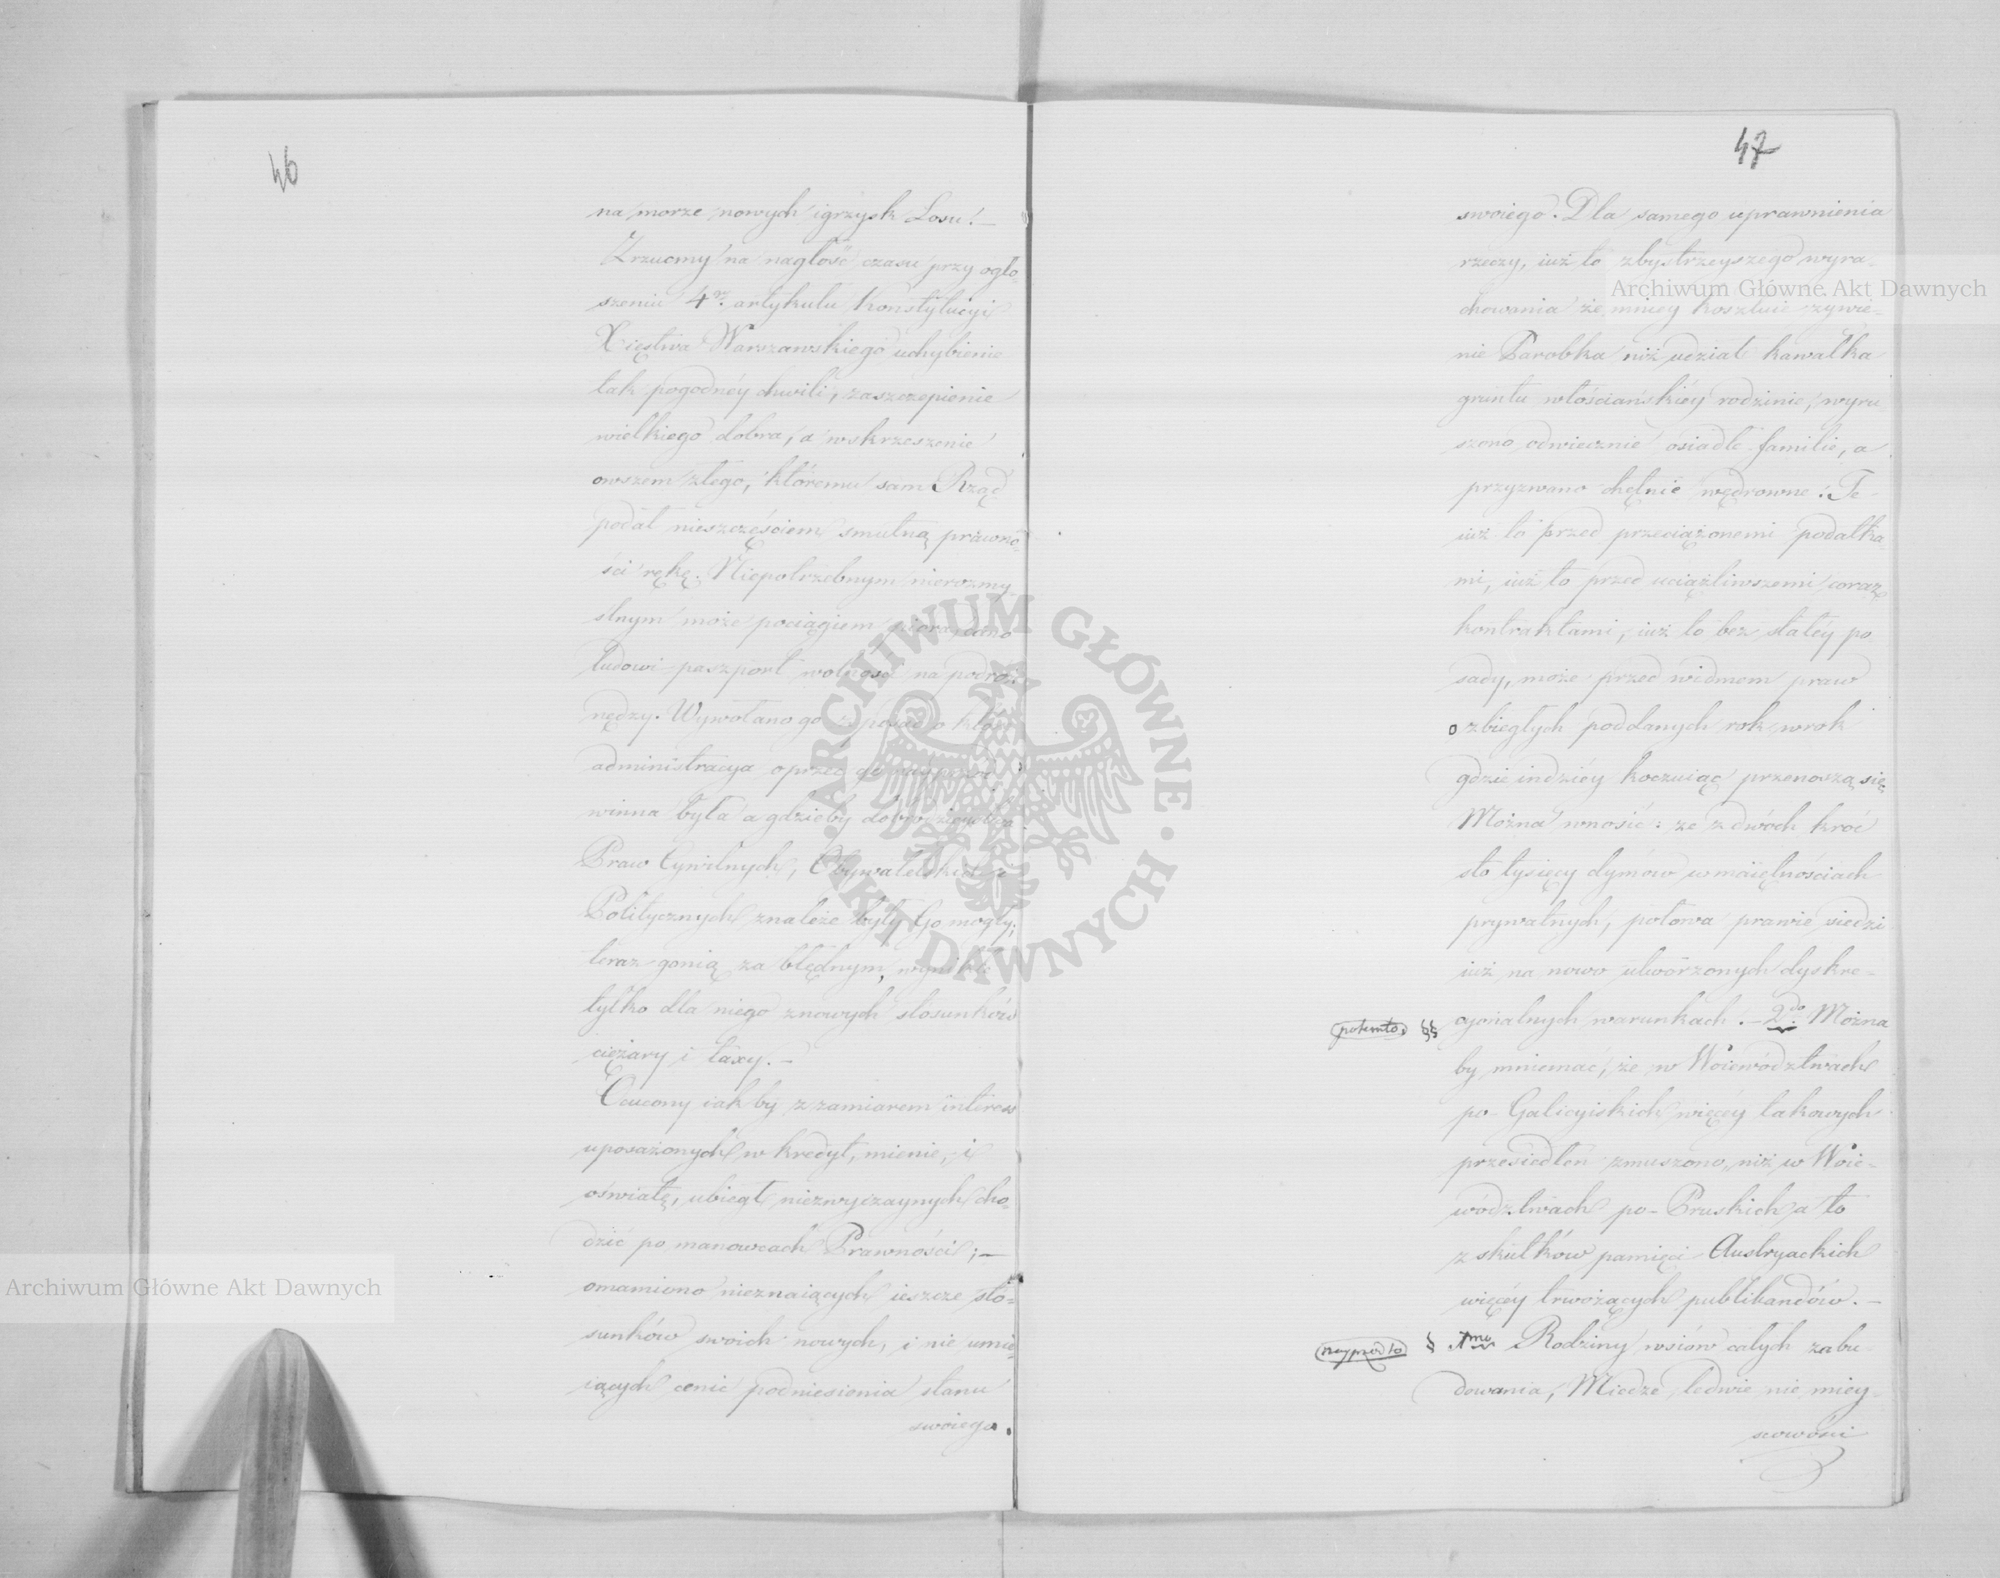 46
na morze nowych igrzysk Losu! —
Zrzućmy na nagłość czasu przy ogło-
szeniu 4go artykułu Konstytucyi
Xięstwa Warszawskiego uchybienie
tak pogodnéy chwili, zaszczepienie
wielkiego dobra, a wskrzeszenie
owszem złego, któremu sam Rząd
podał nieszczęściem smutną prawno-
ści rękę. Niepotrzebnym nierozmy-
ślnym może pociągiem pióra, dano
ludowi paszport wolności na podróż
nędzy. Wywołano go z posad o które
administracya oprzeć go naypierw
winna była a gdzieby dobrodzieystwa
Praw Cywilnych, Obywatelskich i
Politycznych znaleźć były Go mogły;
teraz gonią za błędnym, wynikłe
tylko dla niego z nowych stosunków
ciężary i taxy. —
Ocucony iak by z zamiarem interess
uposażonych w kredyt, mienie, i
oświatę, ubiegł niezwyczaynych cho-
dzić po manowcach Prawności; —
omamiono nieznaiących ieszcze sto-
sunków swoich nowych, i nie umie-
iących cenić podniesienia stanu
swoiego.
47
swoiego. Dla samego uprawnienia
rzeczy, iuż to zbystrzeyszego wyra-
chowania że mniey kosztuie żywie-
nie Parobka niż udział kawałka
gruntu włościańskiéy rodzinie, wyru
szono odwiecznie osiadłe familie, a
przyzwano chętnie wędrowne: Te
iuż to przed przeciążonemi podatka-
mi, iuż to przed uciążliwszemi coraz
kontraktami, iuż to bez stałey po
sady, może przed widmem praw
o zbiegłych poddanych rok w rok
gdzie indziéy koczuiąc przenoszą się
Można wnosić: że z dwóch kroć
sto tysięcy dymów w maiętnościach
prywatnych, połowa prawie siedzi
iuż na nowo utworzonych dyskre-
potem to §§ cyonalnych warunkach. — 2do Można
by mniemać, że w Woiewództwach
po-Galicyiskich więcéy takowych
przesiedleń zmuszono, niż w Woie-
wództwach po-Pruskich a to
z skutków pamięci Austryackich
więcéy trwożących publikandów. —
nayprzód to § 1mo Rodziny wsiów całych zabu-
dowania, Miedze ledwie nie miey-
scowości
Archiwum Główne Akt Dawnych
Archiwum Główne Akt Dawnych
ARCHIWUM GŁÓWNE · AKT DAWNYCH ·